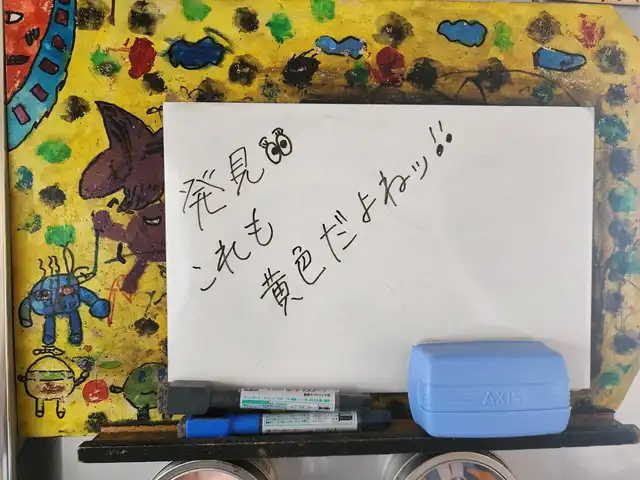 発見👀
これも
黄色だよねッ!!
AXIS